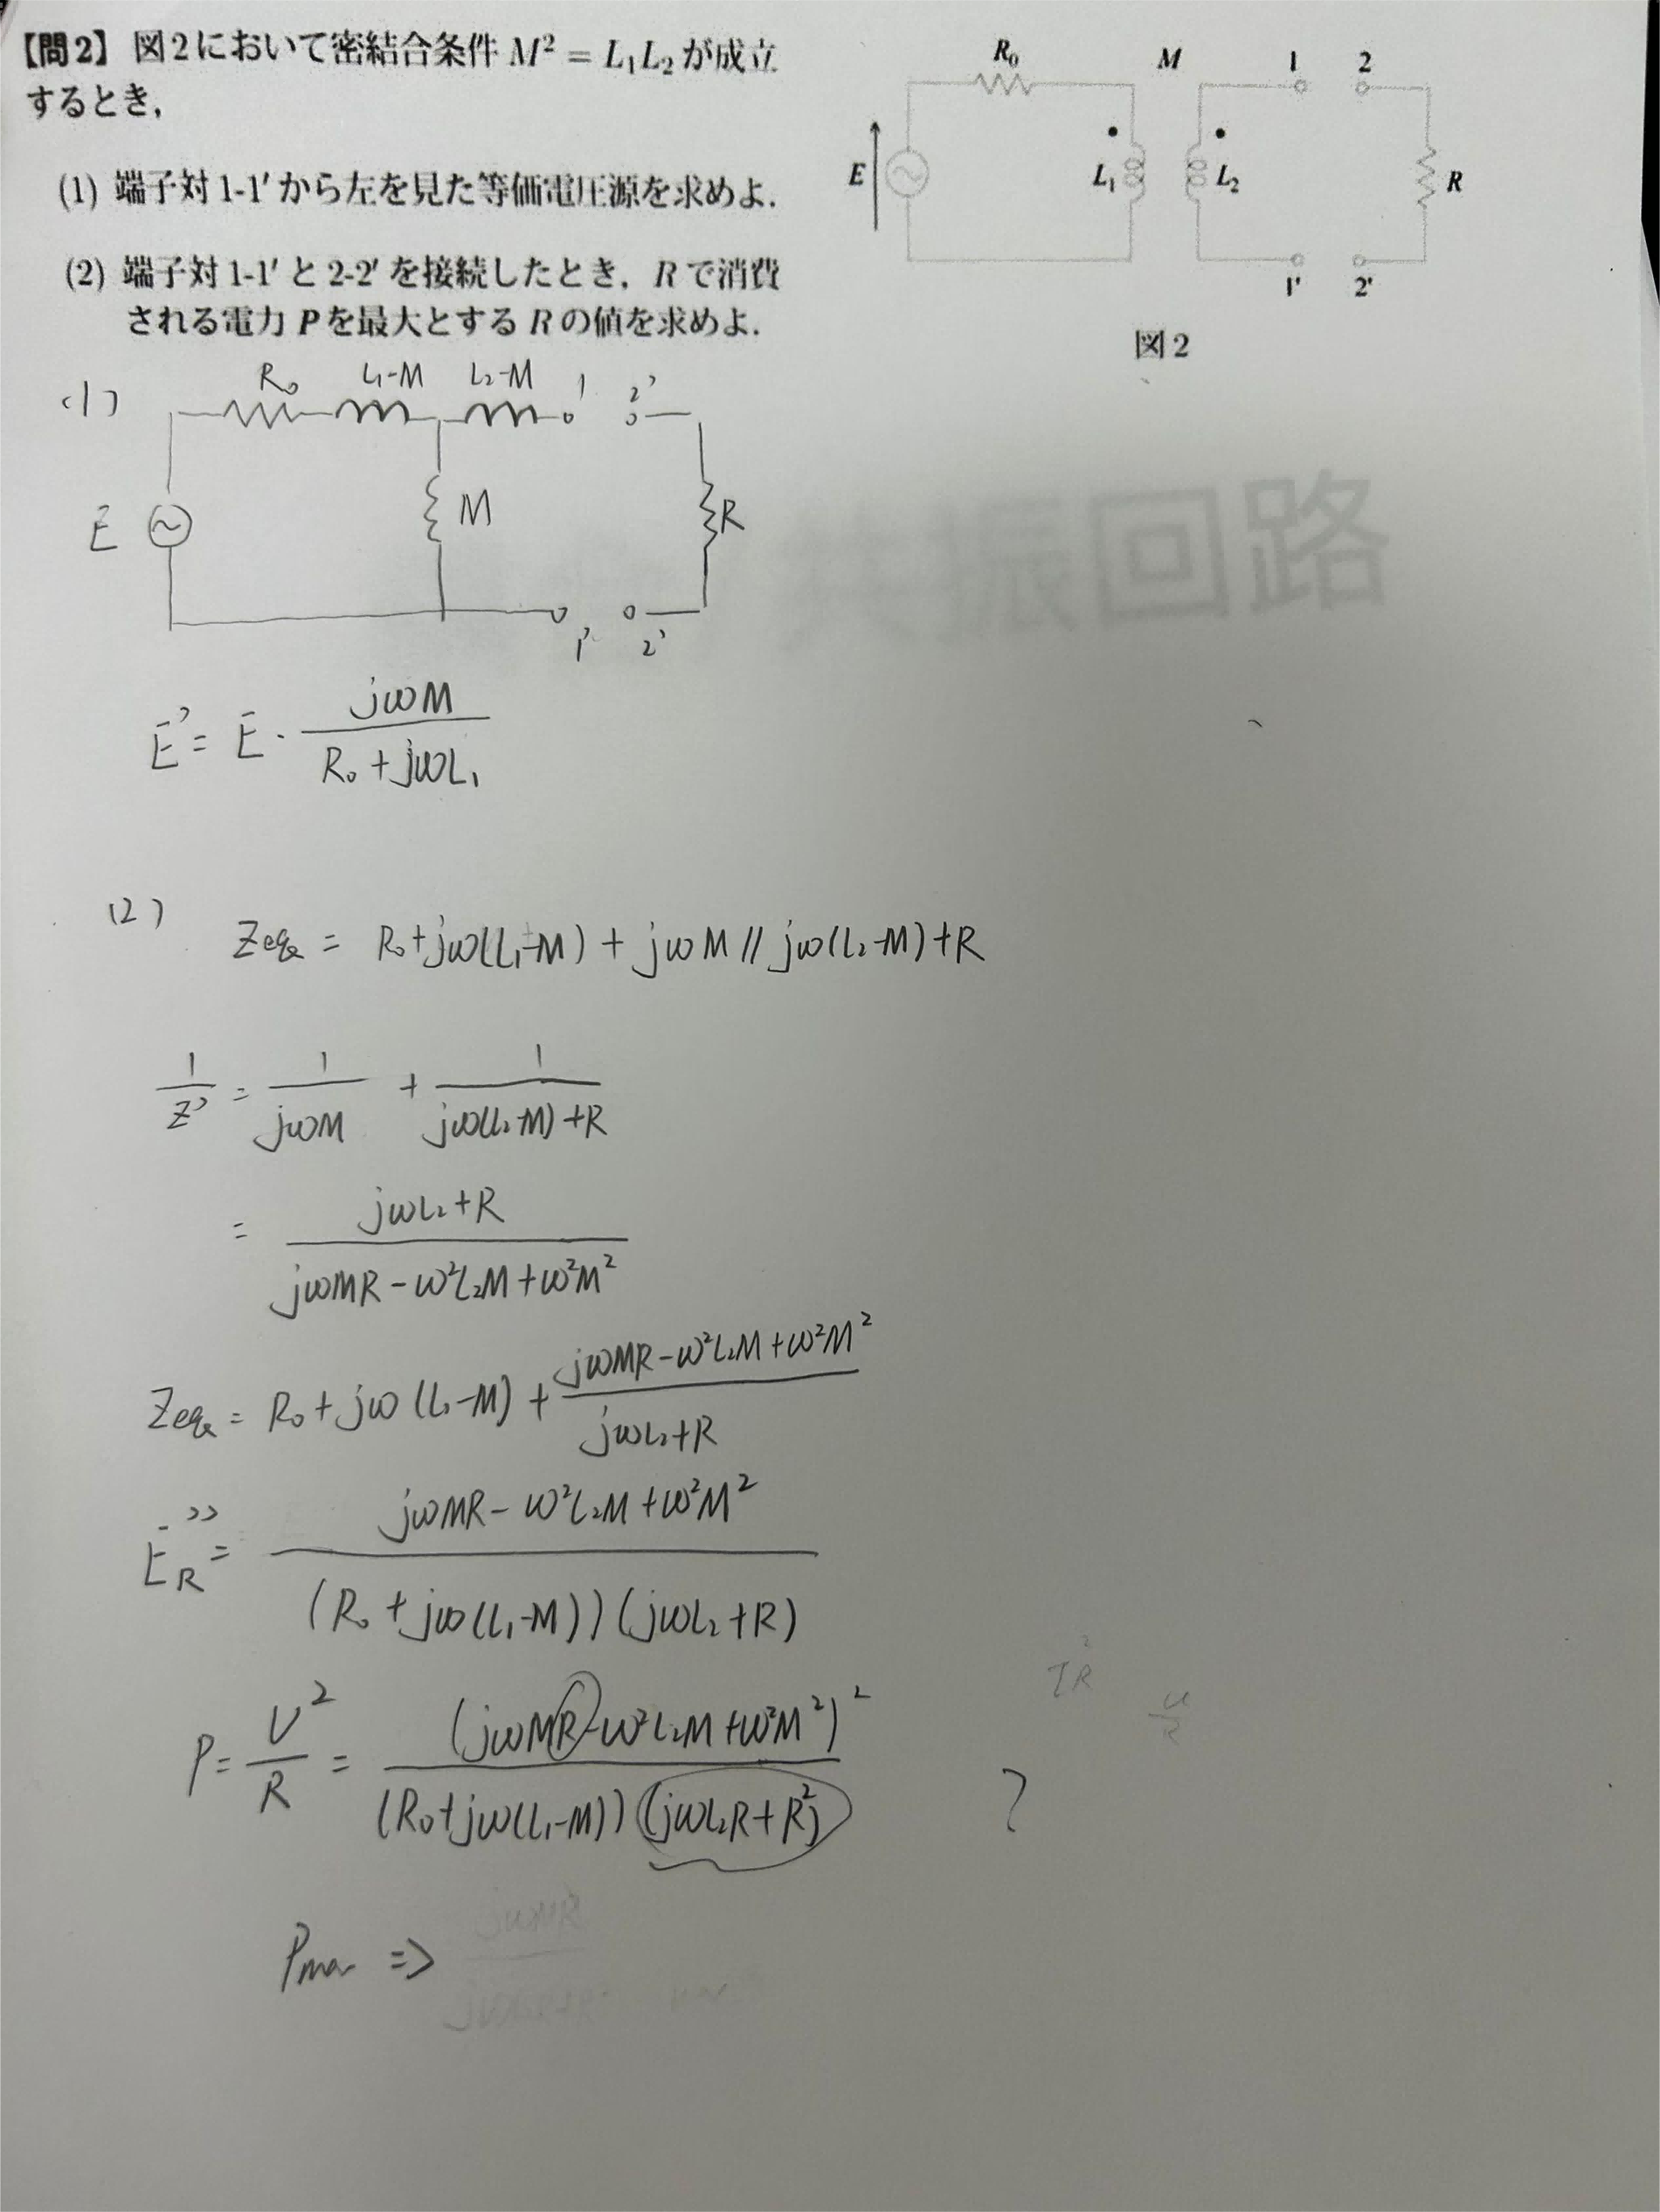 【問2】 図2において密結合条件 M² = L₁L₂が成立
するとき,
(1) 端子対 1-1′から左を見た等価電圧源を求めよ.
(2) 端子対 1-1′と 2-2′を接続したとき, Rで消費
される電力 Pを最大とする Rの値を求めよ.
R₀ M 1 2
E L₁ L₂ R
1' 2'
図2
(1)
R₀ L₁-M L₂-M 1 2'
E M R
1' 2'
E' = E · jωM / (R₀ + jωL₁)
(2) Zeq = R₀+jω(L₁-M) + jωM // jω(L₂-M)+R
1/Z' = 1/jωM + 1/(jω(L₂-M)+R)
= (jωL₂+R) / (jωMR - ω²L₂M + ω²M²)
Zeq = R₀+jω(L₁-M) + (jωMR - ω²L₂M + ω²M²) / (jωL₂+R)
E_R'' = (jωMR - ω²L₂M + ω²M²) / (R₀ + jω(L₁-M))(jωL₂+R)
I²R
P = U²/R = (jωMR - ω²L₂M + ω²M²)² / (R₀+jω(L₁-M))(jωL₂R+R²) ?
Pmax ⇒
振回路